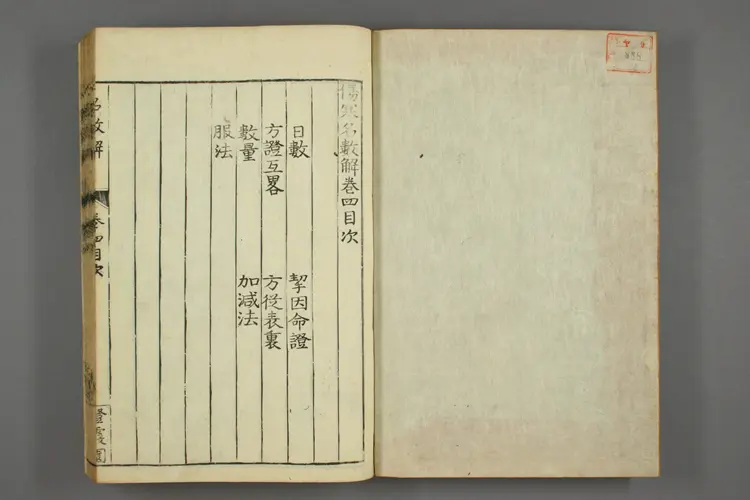 傷寒名數解卷四目次
日數
挈因命證
方證互畧
方從表裏
數量
加減法
服法
名數解
卷四目次